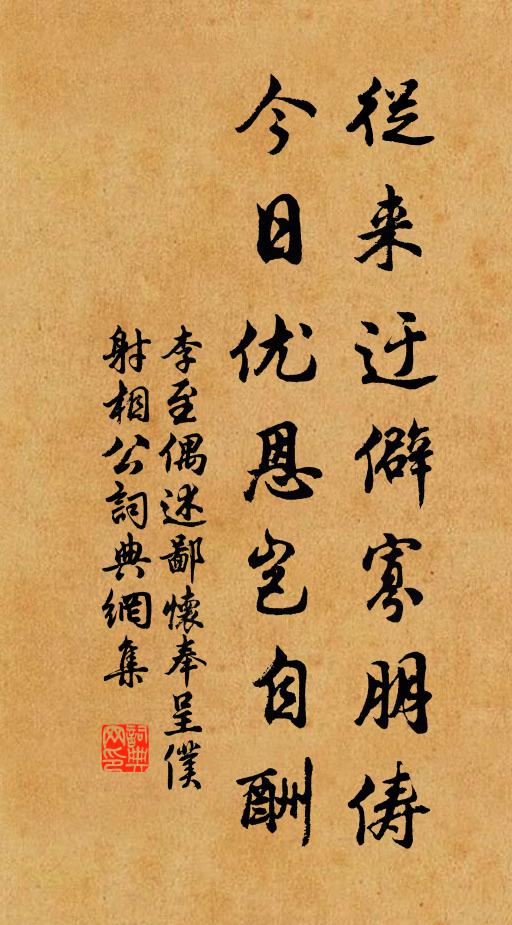 從来迂僻寡朋俦
今日优恩岂自酬
李至偶述鄙懷奉呈僕
射相公詞典網集
詞典網印